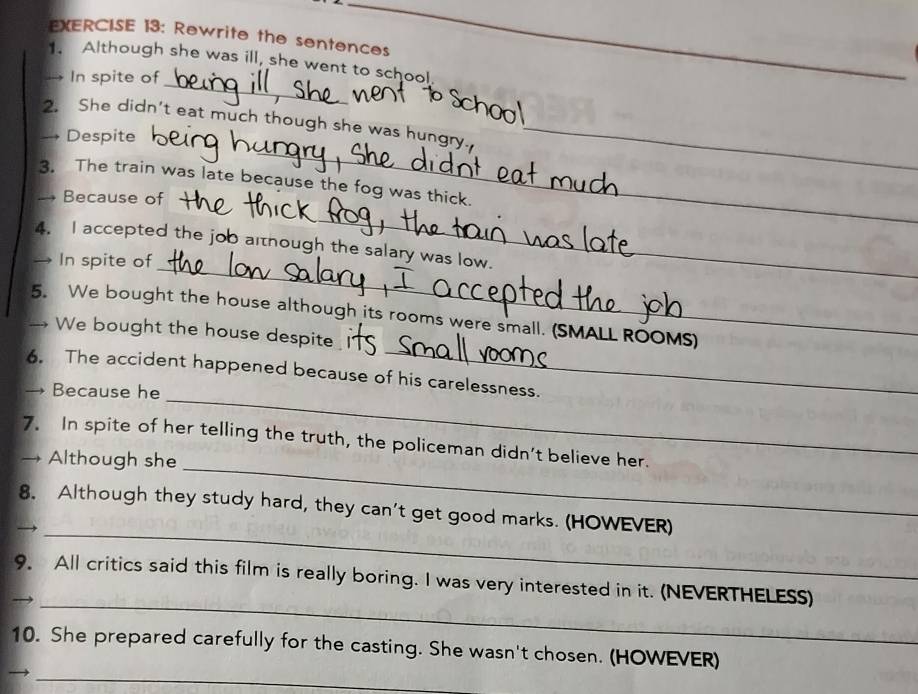 EXERCISE 13: Rewrite the sentences
1. Although she was ill, she went to school.
→ In spite of being ill, she went to school
2. She didn't eat much though she was hungry.
→ Despite being hungry, she didnt eat much
3. The train was late because the fog was thick.
→ Because of the thick frog, the train was late
4. I accepted the job although the salary was low.
→ In spite of the low salary, I accepted the job
5. We bought the house although its rooms were small. (SMALL ROOMS)
→ We bought the house despite its small rooms
6. The accident happened because of his carelessness.
→ Because he
7. In spite of her telling the truth, the policeman didn't believe her.
→ Although she
8. Although they study hard, they can't get good marks. (HOWEVER)
→
9. All critics said this film is really boring. I was very interested in it. (NEVERTHELESS)
→
10. She prepared carefully for the casting. She wasn't chosen. (HOWEVER)
→